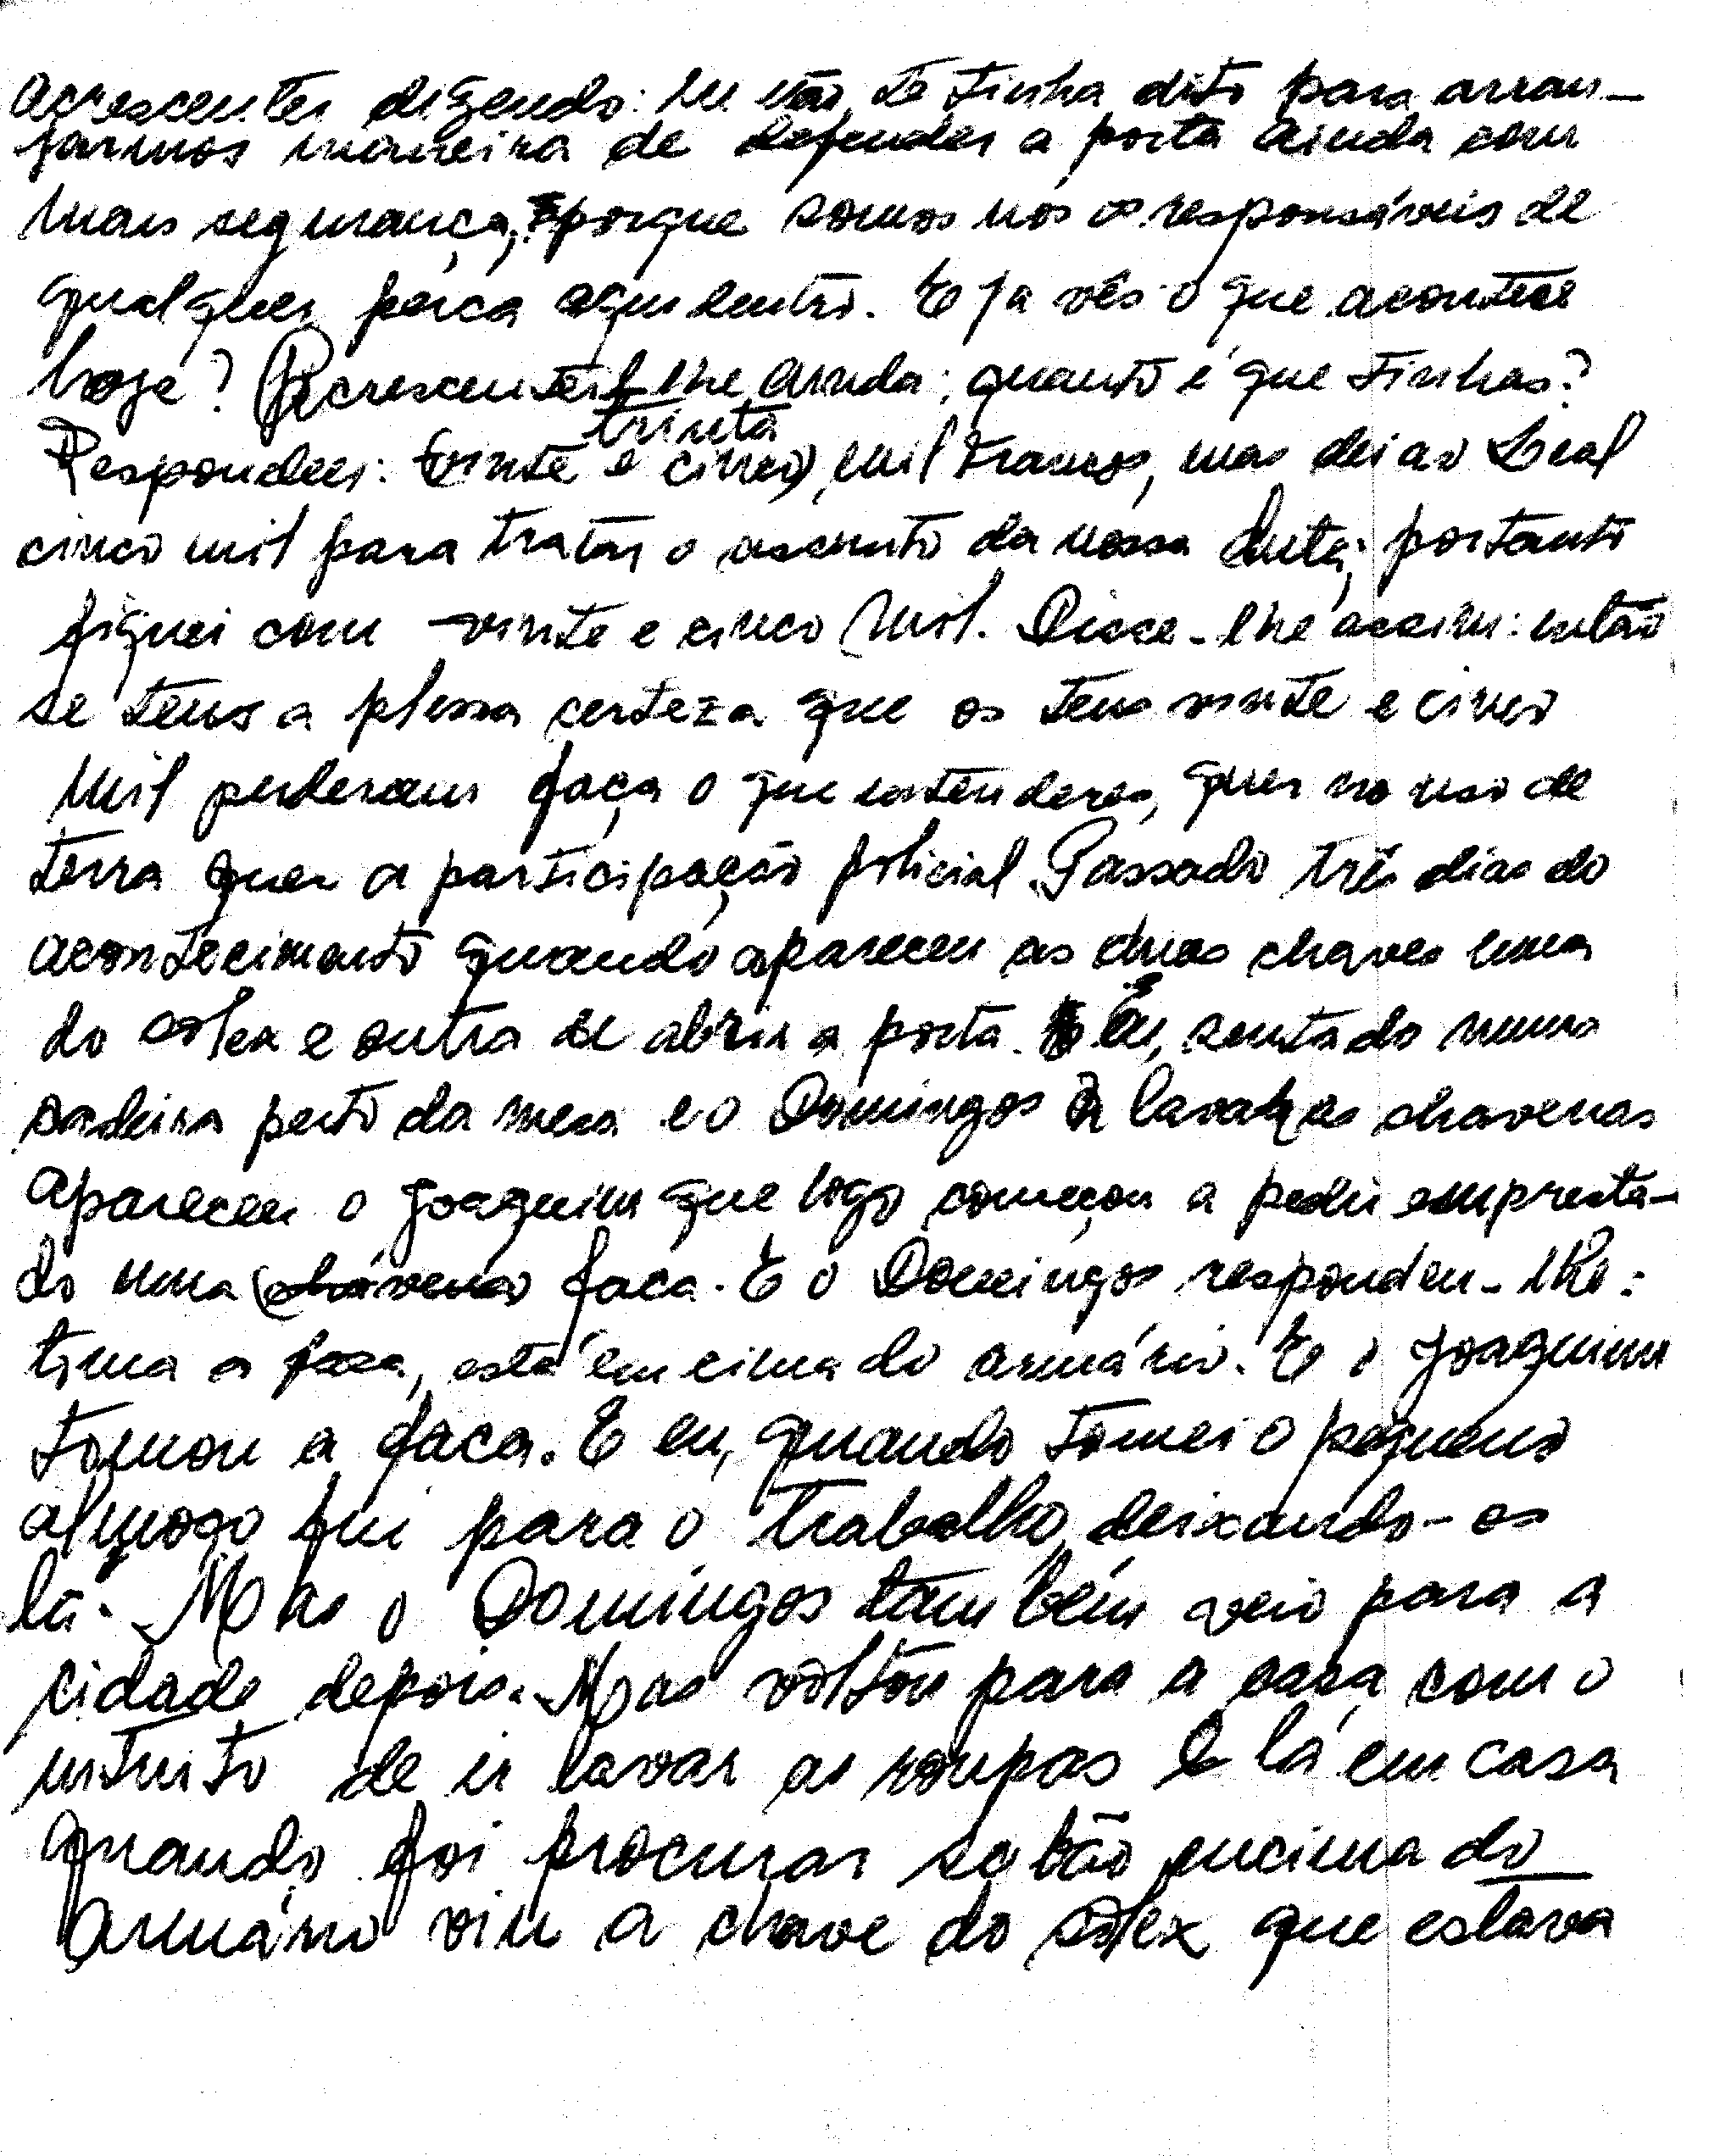 acrescentei dizendo: eu não te tinha dito para arran-
jarmos maneira de defender a porta ainda com
mais segurança, porque somos nós os responsáveis de
qualquer peça aqui dentro. E já vês o que acontece
hoje? Acrescentei-lhe ainda: quanto é que tinhas?
Respondeu: trinta e cinco mil francos, mas dei ao Leal
cinco mil para tratar o assunto da nossa luta; portanto
fiquei com vinte e cinco mil. Disse-lhe assim: então
se tens a plena certeza que os teus vinte e cinco
mil perderam faça o que entenderes, quer no uso de
terra quer a participação policial. Passado três dias do
acontecimento quando apareceu as duas chaves uma
do solex e outra de abrir a porta. Eu, sentado numa
cadeira perto da mesa e o Domingos a lavar as chavenas
apareceu o Joaquim que logo começou a pedir empresta-
do uma chávena faca. E o Domingos respondeu-lhe:
toma a faca, está em cima do armário. E o Joaquim
tomou a faca. E eu, quando tomei o pequeno
almoço fui para o trabalho, deixando-os
lá. Mas o Domingos também veio para a
cidade depois. Mas voltou para a casa com o
intuito de ir lavar as roupas e lá em casa
quando foi procurar sabão encima do
armário viu a chave do solex que estava